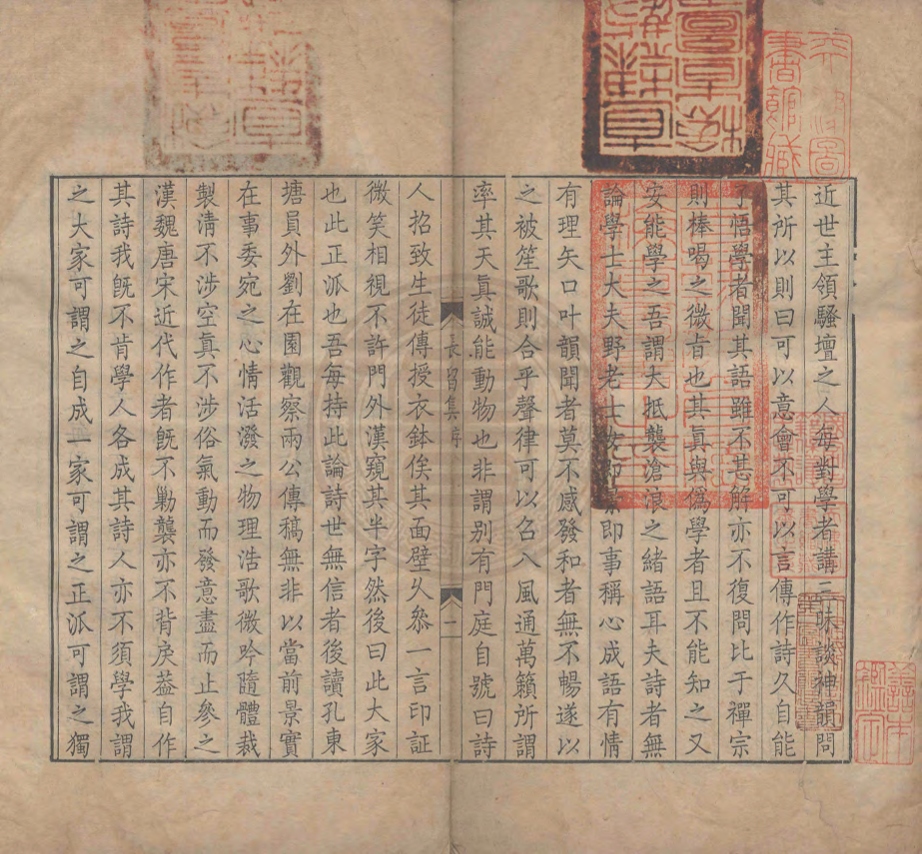 近世主領騷壇之人每對學者講三昧談神韻問
其所以則曰可以意會不可以言傳作詩久自能
了悟學者聞其語雖不甚解亦不復問比于禪宗
則棒喝之微旨也其眞與僞學者且不能知之又
安能學之吾謂大抵襲滄浪之緒語耳夫詩者無
論學士大夫野老士女卽景卽事稱心成語有情
有理矢口叶韻聞者莫不感發和者無不暢遂以
之被笙歌則合乎聲律可以召入風通萬籟所謂
率其天眞誠能動物也非謂別有門庭自號曰詩
長留集序
一
人招致生徒傳授衣鉢俟其面壁乆叅一言印証
微笑相視不許門外漢窺其半字然後曰此大家
也此正派也吾每持此論詩世無信者後讀孔東
塘員外劉在園觀察兩公傳稿無非以當前景實
在事委宛之心情活潑之物理浩歌微吟隨體裁
製淸不涉空眞不涉俗氣動而發意盡而止參之
漢魏唐宋近代作者旣不勦襲亦不背戾葢自作
其詩我旣不肯學人各成其詩人亦不須學我謂
之大家可謂之自成一家可謂之正派可謂之獨